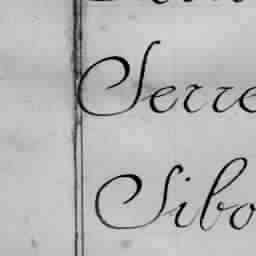 Serre
Sibo